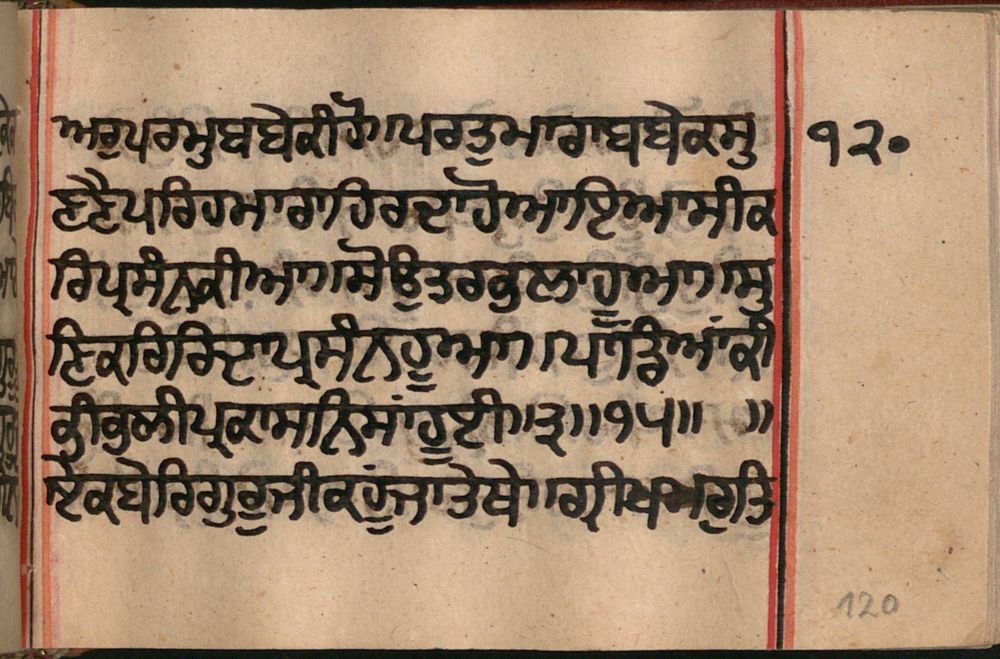 ਅਰੁਪਰਮੁਬਬੇਕੀਹੈ॥ਪਰਤੁਮਾਰਾਬਬੇਕਸੁ
ਣੇਨੈਪਰਿਹਮਾਰਾਹਿਰਦਾਹੋਆਇਆਸੀਕ
ਰਿਪ੍ਰਸੰਨਕੀਆ॥ਸੋਉਤਰਕੁਲਾਹੂਆ॥ਸੁ
ਣਿਕਰਿਰਿਦਾਪ੍ਰਸੰਨਹੂਆ॥ਪਾਂਡਿਆਂਕੀ
ਕੁੀਕੁਲੀਪ੍ਰਕਾਸਨਿਮਾਂਹੂਈ॥੩॥੧੫॥ ॥
ਏਕਬੇਰਿਗੁਰੂਜੀਕਹੂੰਜਾਤੇਥੇ॥ਗ੍ਰੀਖਮਰੁਤਿ
੧੨੦
120